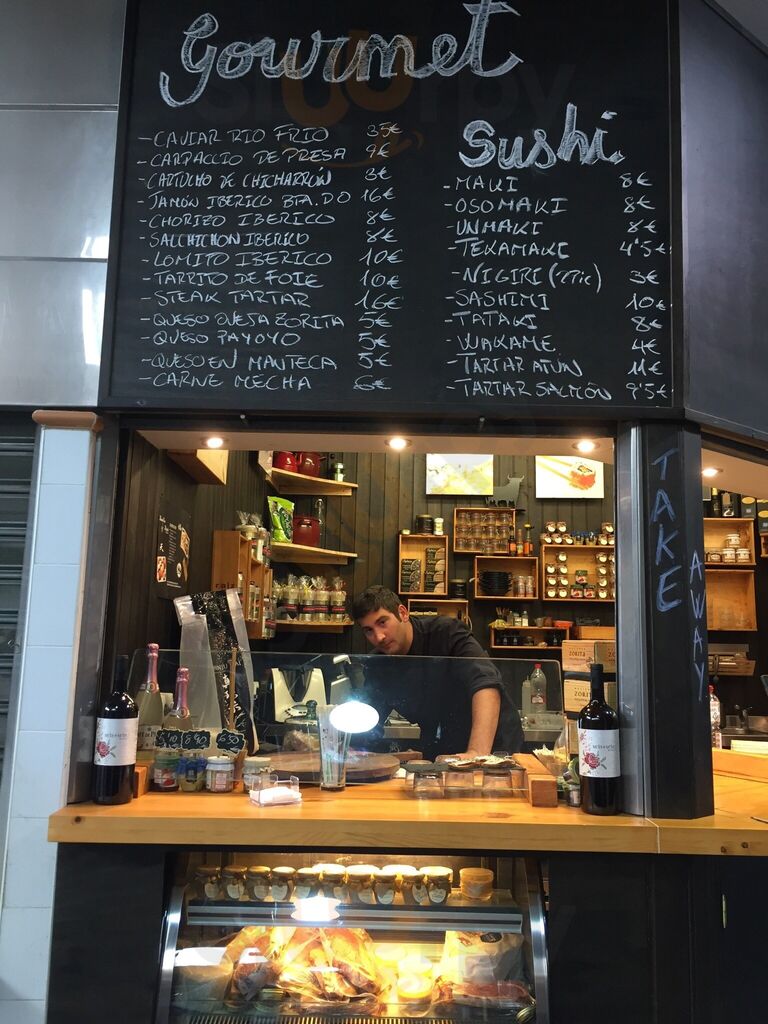 Gourmet
- CAVIAR RIO FRIO 35€
- CARPACCIO DE PRESA 9€
- CARTUCHO DE CHICHARRÓN 3€
- JAMÓN IBERICO BTA. D.O 16€
- CHORIZO IBERICO 8€
- SALCHICHON IBERICO 8€
- LOMITO IBERICO 10€
- TARRITO DE FOIE 10€
- STEAK TARTAR 16€
- QUESO OVEJA ZORITA 5€
- QUESO PAYOYO 5€
- QUESO EN MANTECA 5€
- CARNE MECHA 6€
Sushi
- MAKI 8€
- OSOMAKI 8€
- UNMAKI 8€
- TEKAMAKI 4'5€
- NIGIRI 3€
- SASHIMI 10€
- TATAKI 8€
- WAKAME 4€
- TARTAR ATÚN 11€
- TARTAR SALMÓN 9'5€
TAKE
AWAY
ZORITA
ZORITA